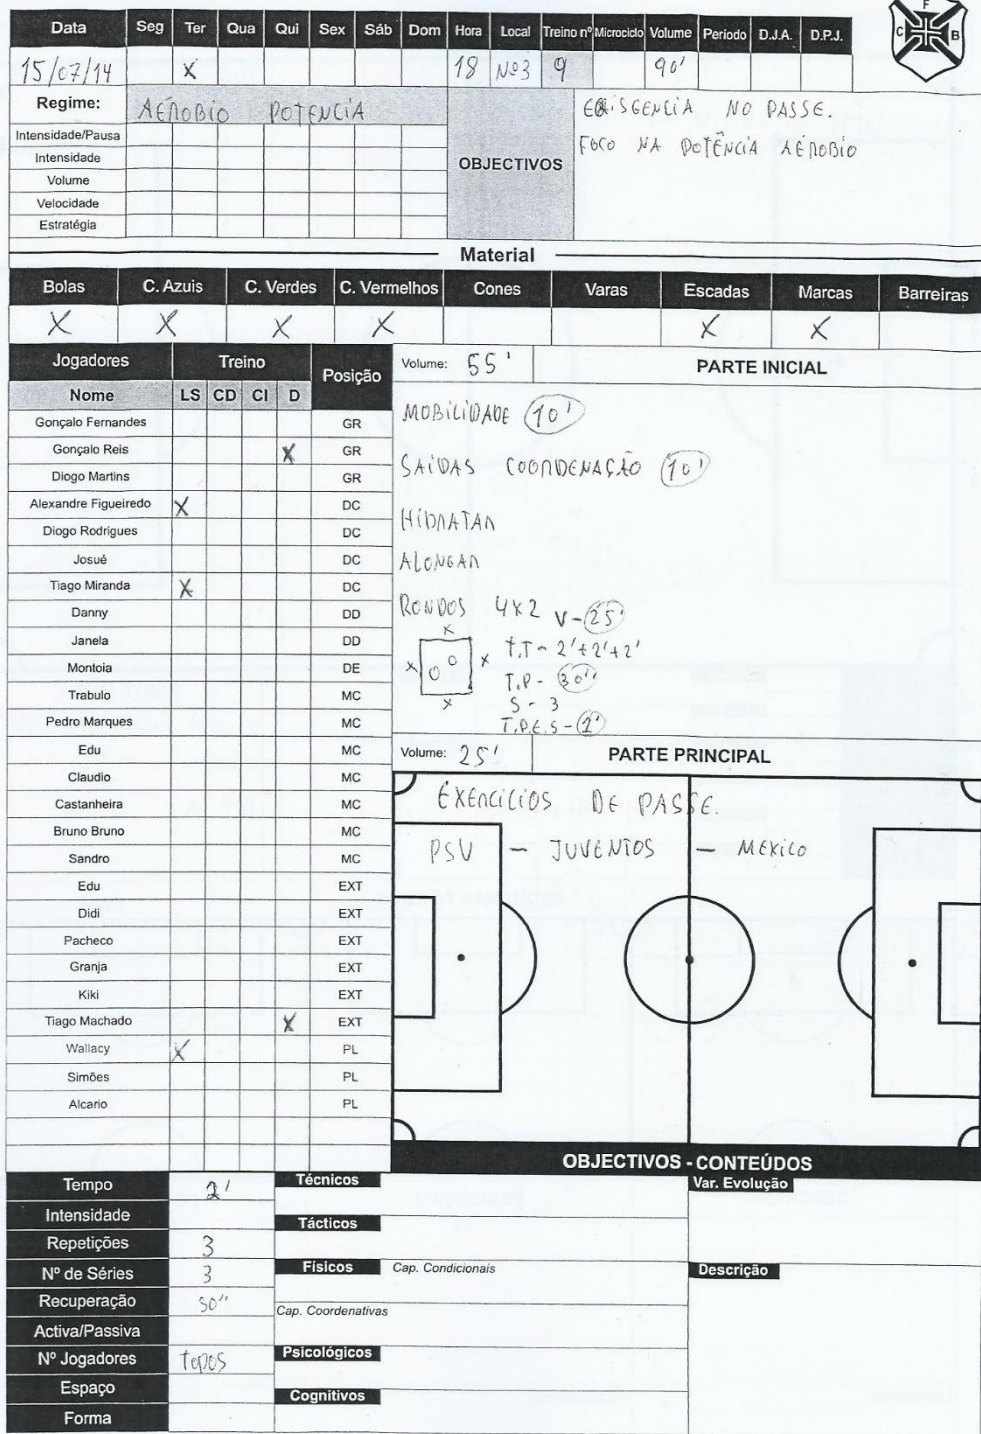 F
C B
Data Seg Ter Qua Qui Sex Sáb Dom Hora Local Treino nº Microciclo Volume Período D.J.A. D.P.J.
15/07/14 X 18 Nº3 9 90'
Regime: AÉROBIO POTENCIA
Intensidade/Pausa
Intensidade
Volume
Velocidade
Estratégia
OBJECTIVOS
NO PASSE.
FOCO NA POTÊNCIA AÉROBIO
Material
Bolas C. Azuis C. Verdes C. Vermelhos Cones Varas Escadas Marcas Barreiras
X X X X X X
Jogadores Treino Posição
Nome LS CD CI D
Gonçalo Fernandes GR
Gonçalo Reis X GR
Diogo Martins GR
Alexandre Figueiredo X DC
Diogo Rodrigues DC
Josué DC
Tiago Miranda X DC
Danny DD
Janela DD
Montoia DE
Trabulo MC
Pedro Marques MC
Edu MC
Claudio MC
Castanheira MC
Bruno Bruno MC
Sandro MC
Edu EXT
Didi EXT
Pacheco EXT
Granja EXT
Kiki EXT
Tiago Machado X EXT
Wallacy X PL
Simões PL
Alcario PL
Volume: 55' PARTE INICIAL
MOBILIDADE 10'
SAÍDAS COORDENAÇÃO 10'
HIDRATAR
ALONGAR
RONDOS 4X2 V-25'
X
X O O X
X
T.T - 2'+2'+2'
T.P - 30''
S - 3
T.P.E.S - 2'
Volume: 25' PARTE PRINCIPAL
EXERCICIOS DE PASSE.
PSV - JUVENTOS - MEXICO
OBJECTIVOS - CONTEÚDOS
Tempo 2'
Intensidade
Repetições 3
Nº de Séries 3
Recuperação 50''
Activa/Passiva
Nº Jogadores TODOS
Espaço
Forma
Técnicos
Tácticos
Físicos Cap. Condicionais
Cap. Coordenativas
Psicológicos
Cognitivos
Var. Evolução
Descrição